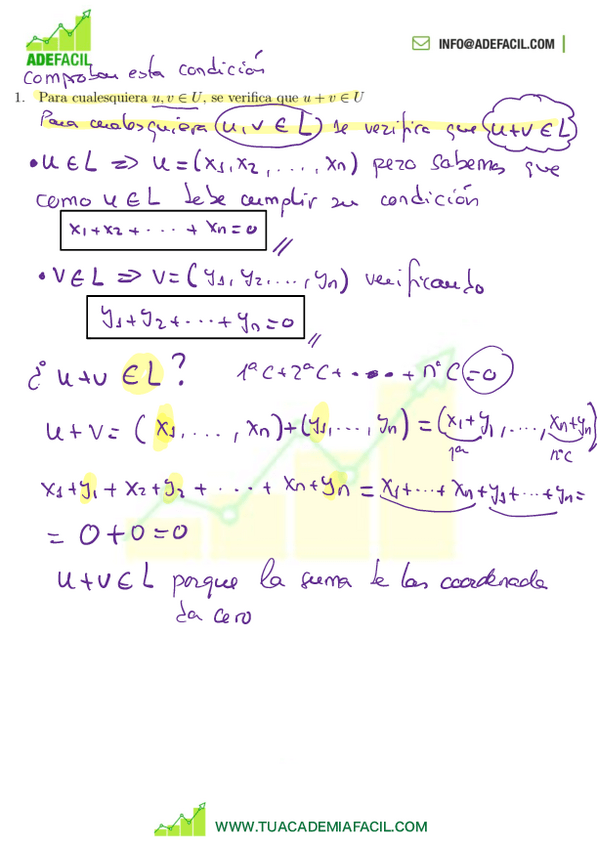 ADEFACIL
INFO@ADEFACIL.COM
Comprobar esta condición
1. Para cualesquiera u, v ∈ U, se verifica que u + v ∈ U
Para cualesquiera (u, v ∈ L) se verifica que u+v ∈ L
• u ∈ L ⇒ u = (x1, x2, ..., xn) pero sabemos que
como u ∈ L debe cumplir su condición
x1 + x2 + ... + xn = 0 //
• v ∈ L ⇒ v = (y1, y2, ..., yn) verificando
y1 + y2 + ... + yn = 0 //
¿ u+v ∈ L? 1ªC + 2ªC + .... + nªC = 0
u + v = (x1, ..., xn) + (y1, ..., yn) = (x1+y1, ..., xn+yn)
1ª nªC
x1 + y1 + x2 + y2 + ... + xn + yn = x1 + ... + xn + y1 + ... + yn =
= 0 + 0 = 0
u+v ∈ L porque la suma de las coordenada
da cero
WWW.TUACADEMIAFACIL.COM